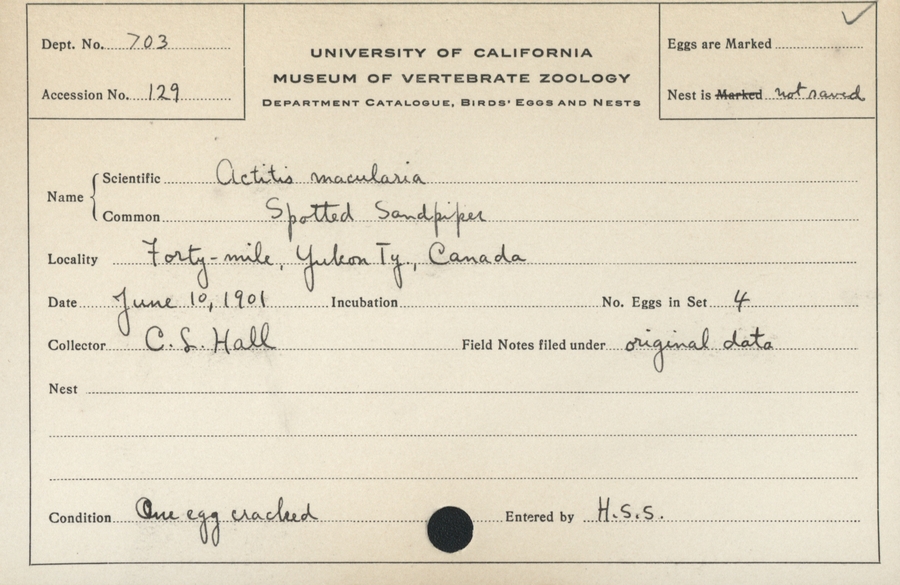 Dept. No. 703
UNIVERSITY OF CALIFORNIA
MUSEUM OF VERTEBRATE ZOOLOGY
DEPARTMENT CATALOGUE, BIRDS' EGGS AND NESTS
Eggs are Marked
Accession No. 129
Nest is Marked not saved
Name
Scientific Actitis macularia
Common Spotted Sandpiper
Locality Forty-mile, Yukon Ty., Canada
Date June 10, 1901 Incubation No. Eggs in Set 4
Collector C. L. Hall Field Notes filed under original data
Nest
Condition One egg cracked Entered by H.S.S.